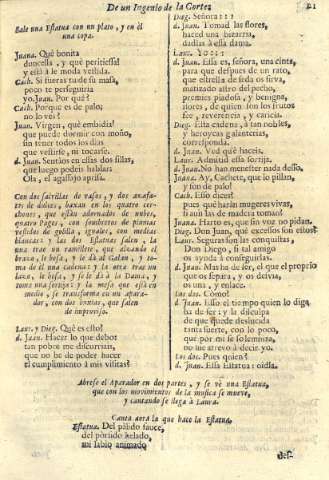 De un Ingenio de la Corte.
21
Sale una Estatua con un plato, y en èl
una copa.
Juana. Què bonita
doncella, y què peritissia!
y està à la moda vestida.
Cach. Si fueras tu de su masa,
poco te perseguiria
yo. Juan. Por què?
Cach. Porque es de palo;
no lo vès?
Juan. Virgen, què embidia!
que puede dormir con moño,
sin tener todos los dias
que vestirse, ni tocarse.
d. Juan. Sentaos en essas dos sillas,
que luego podeis hablar:
Ola, el agassajo aprisa.
Con dos salvillas de
de dulces, baxan en los quatro cer-
que estàn adornados de nubes,
quatro Pages, con sombreros de plumas
vestidos de golilla, iguales, con medias
blancas: y las dos Estatuas salen, la
una trae un ramillete, que alzando el
brazo, le besa, y le dà al Galan, y to-
ma de èl una cadena: y la otra trae un
lazo, le besa, y le dà à la Dama, y
toma una sortija: y la mesa que està en
medio, se transforma en un apara-
dor, con dos que salen
de improviso.
Laur. y Dieg. Què es esto?
d. Juan. Hacer lo que debo:
tan pobre me discurrian,
que no he de poder hacer
el cumplimiento à mis visitas?
Dieg. Señora:::
d. Juan. Tomad las flores,
haced una bizarria,
dadlas à essa dama.
Laur. Yo:::
d. Juan. Essa es, señora, una cinta,
para que despues de un rato,
que estrella de seda os sirva,
matizado astro del pecho,
premies piadosa, y benigna,
flores, de quien son los frutos
fee, reverencia, y caricia.
Dieg. Esta cadena, à tan nobles,
y heroycas galanterias,
corresponda.
d. Juan. Ved què haceis.
Laur. Admitid essa sortija.
d. Juan. No han menester nada desso.
Juana. Ay, Cachete, que lo pillan,
y son de palo!
Cach. Esso dices?
Pues què haràn mugeres vivas,
si aun las de madera toman?
Juana. Harto es, que sin voz no pidan.
Dieg. Don Juan, què excessos son estos?
Laur. Seguraràn las conquistas,
Don Diego, si tal amigo
os ayuda à conseguirlas.
d. Juan. Mas ha de ser, el que el proprio
que os espera, y os desvia,
os una, y enlace.
Los dos. Como?
d. Juan. Esso el tiempo quien lo diga
ha de ser; y la disculpa
de que quede desluzida
tanta fuerte, con lo poco,
que por mi se solemniza,
no me atrevo à decir yo.
Los dos. Pues quien?
d. Juan. Essa Estatua: oidla.
Abrese el Aparador en dos partes, y se vè una Estatua,
que con los movimientos de la musica se mueve,
y cantando se llega à Laura.
Canta aora lo que hace la Estatua.
Estatua. Del palido fauce,
del pòrtido helado,
mi labio animado
des-